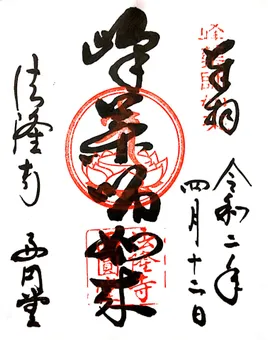 奉拝
令和二年
四月十二日
峰薬師如来
法隆寺 西円堂
法隆寺